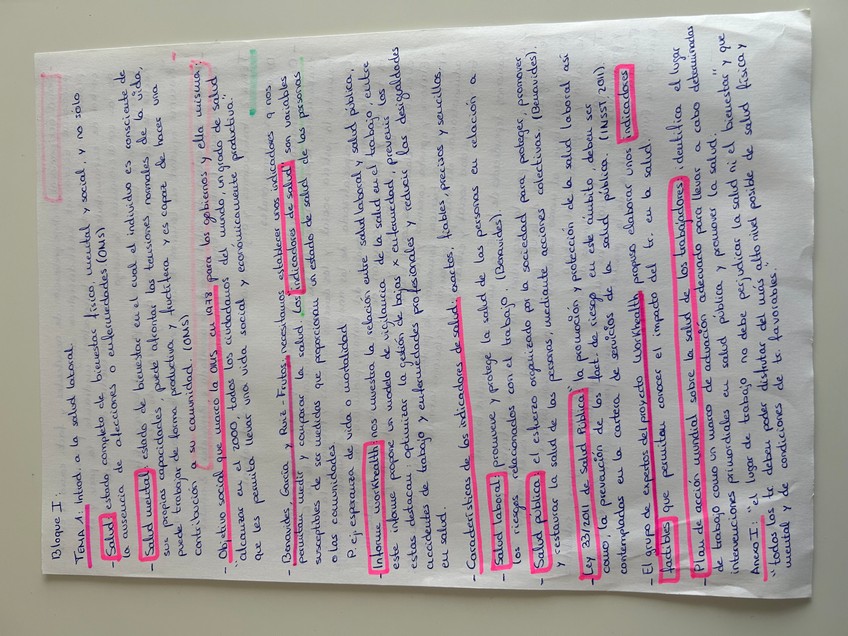 Bloque I:
TEMA 1: Introd. a la salud laboral.
- Salud: estado completo de bienestar físico, mental y social, y no sólo
la ausencia de afecciones o enfermedades (OMS)
- Salud mental: estado de bienestar en el cual el individuo es consciente de
sus propias capacidades, puede afrontar las tensiones normales de la vida,
puede trabajar de forma productiva y fructífera y es capaz de hacer una
contribución a su comunidad. (OMS)
- Objetivo social que marco la OMS en 1978 para los gobiernos y ella misma:
"alcanzar en el 2000, todos los ciudadanos del mundo, un grado de salud
que les permita llevar una vida social y económicamente productiva".
- Benavides, García y Ruiz-Frutos: necesitamos establecer unos indicadores q nos
permitan medir y comparar la salud. Los indicadores de salud son variables
susceptibles de ser medidas que proporcionan un estado de salud de las personas
o las comunidades
P. ej. esperanza de vida o mortalidad
- Informe workhealth nos muestra la relación entre salud laboral y salud pública,
este informe propone un modelo de vigilancia de la salud en el trabajo, entre
estas destacan: optimizar la gestión de bajas x enfermedad, prevenir los
accidentes de trabajo y enfermedades profesionales y reducir las desigualdades
en salud.
- Características de los indicadores de salud: exactos, fiables, precisos y sencillos.
- Salud laboral: promueve y protege la salud de las personas en relación a
los riesgos relacionados con el trabajo. (Benavides)
- Salud pública: el esfuerzo organizado por la sociedad para proteger, promover
y restaurar la salud de las personas, mediante acciones colectivas. (Benavides).
- Ley 33/2011 de Salud Pública: "la promoción y protección de la salud laboral así
como, la prevención de los fact. de riesgo en este ámbito, deben ser
contempladas en la cartera de servicios de la salud pública. (INSST, 2011).
- El grupo de expertos del proyecto Workhealth, propuso elaborar unos indicadores
factibles que permitan conocer el impacto del tr. en la salud.
- Plan de acción mundial sobre la salud de los trabajadores: identifica el lugar
de trabajo como un marco de actuación adecuado para llevar a cabo determinadas
intervenciones primordiales en salud pública y promover la salud.
Anexo I: "el lugar de trabajo no debe perjudicar la salud ni el bienestar" y que
"todos los tr. deben poder disfrutar del más alto nivel posible de salud física y
mental y de condiciones de tr. favorables."